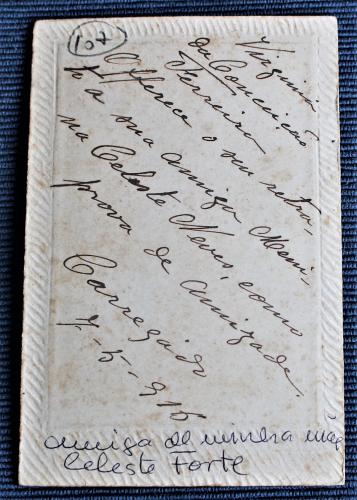 107
Virginia
da Conceição
Ferreira
Offerece o seu retra-
to a sua amiga Meni-
na Celeste Neves, como
prova de amizade.
Carregado
7-5-915
amiga de minha mãe
Celeste Forte